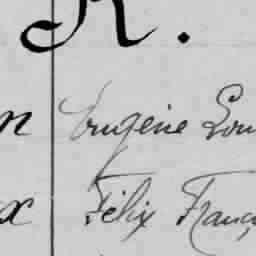 R.
n Eugène Lou
x Félix Franç